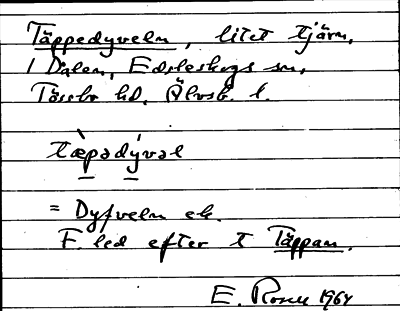 Täppedyveln, litet tjärn,
i Dalen, Edsleskogs sn,
Tössbo hd, Älvsb. l.
tæ̀pədývəl
= Dyfveln ek.
F. led efter t Täppan.
E. Rosén 1964